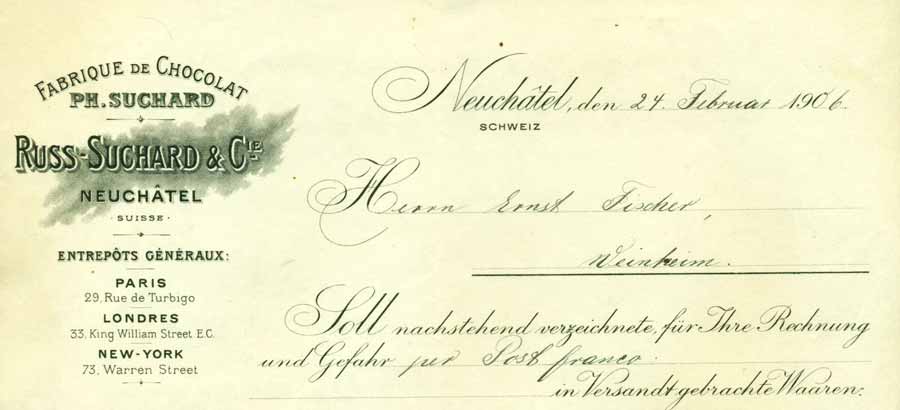 FABRIQUE DE CHOCOLAT
PH. SUCHARD
RUSS-SUCHARD & CIE
NEUCHÂTEL
SUISSE
ENTREPÔTS GÉNÉRAUX:
PARIS
29, Rue de Turbigo
LONDRES
33, King William Street E.C.
NEW-YORK
73, Warren Street
Neuchâtel, den 24. Februar 1906.
SCHWEIZ
Herrn Ernst Fischer,
Weinheim.
Soll nachstehend verzeichnete, für Ihre Rechnung
und Gefahr per Post franco.
in Versandt gebrachte Waaren: